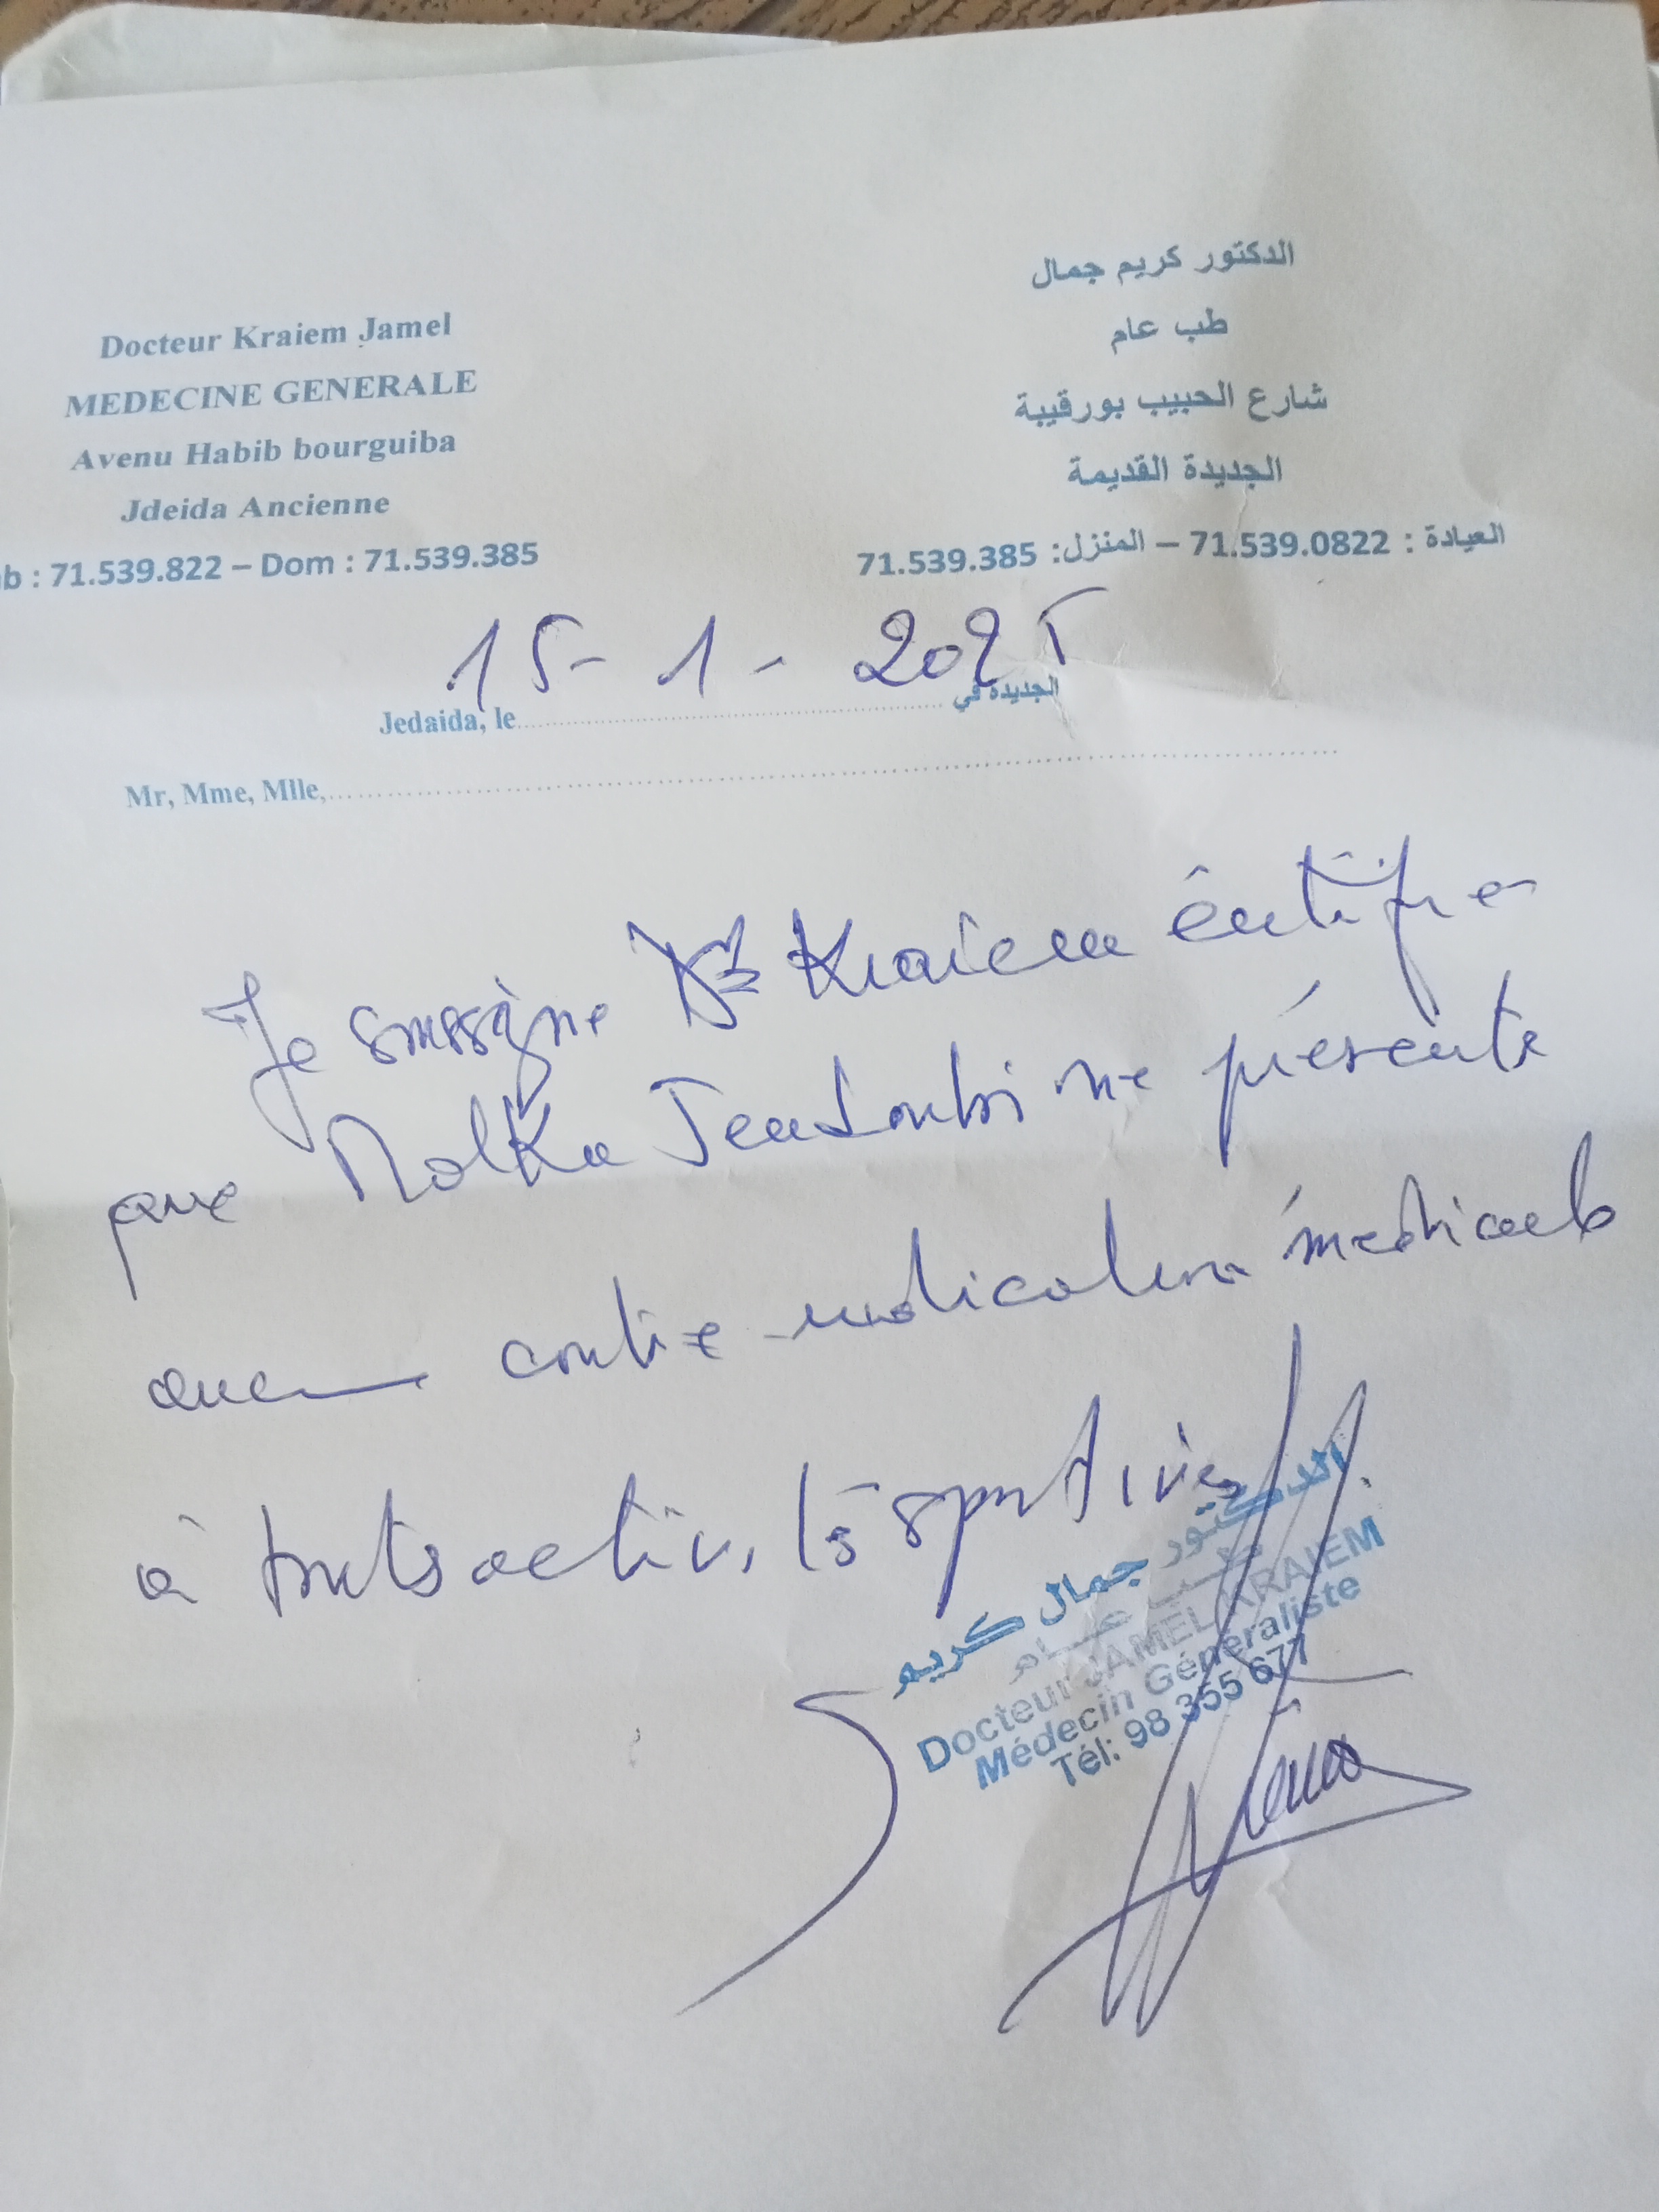 Docteur Kraiem Jamel
MEDECINE GENERALE
Avenu Habib bourguiba
Jdeida Ancienne
b : 71.539.822 – Dom : 71.539.385
الدكتور كريم جمال
طب عام
شارع الحبيب بورقيبة
الجديدة القديمة
العيادة : 71.539.0822 – المنزل: 71.539.385
15-1-2025
Jedaida, le الجديدة في
Mr, Mme, Mlle,
Je soussigné Dr Kraiem certifie
que Molka Jendoubi ne présente
aucune contre-indication médicale
à toutes activités sportives.
الدكتور جمال كريم
طب عام
Docteur JAMEL KRAIEM
Médecin Généraliste
Tél: 98 355 677